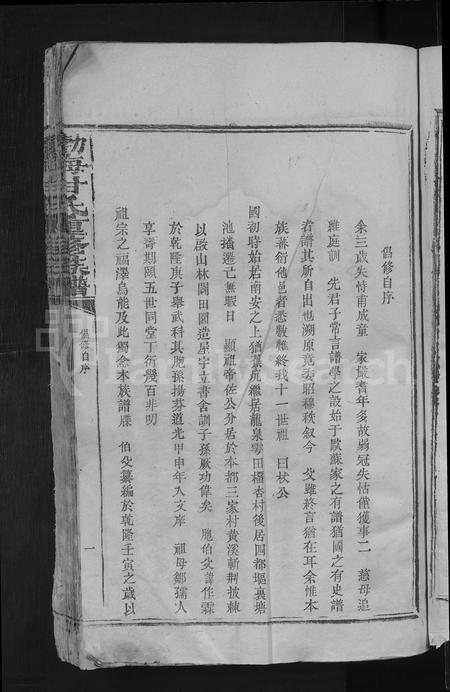 倡修自序
余三歲失恃甫成童　家嚴耆年多故弱冠失怙僅獲事二　慈母追
維庭訓　先君子常言譜學之設始于歐蘇家之有譜猶國之有史譜
者譜其所自出也溯原竟委昭穆秩叙今　父雖終言猶在耳余惟本
族蕃衍他邑者悉數難終我十一世祖　曰杖公
國初時始居南安之上猶　繼居龍泉零田榴杏村後居四都堀裏塘
池播遷己無暇日　顯祖帝佐公分居於本都三家村黃溪斬荆披棘
以啟山林闢田園造屋宇立書舍訓子孫厥功偉矣　胞伯父諱作霖
於乾隆庚子舉武科其胞孫揚芬道光甲申年入文庠　祖母鄒孺人
享壽期頤五世同堂丁衍幾百非叨
祖宗之福澤烏能及此獨念本族譜牒　伯父纂編於乾隆壬寅之歲以
勃海甘氏重修族譜
倡修自序
一